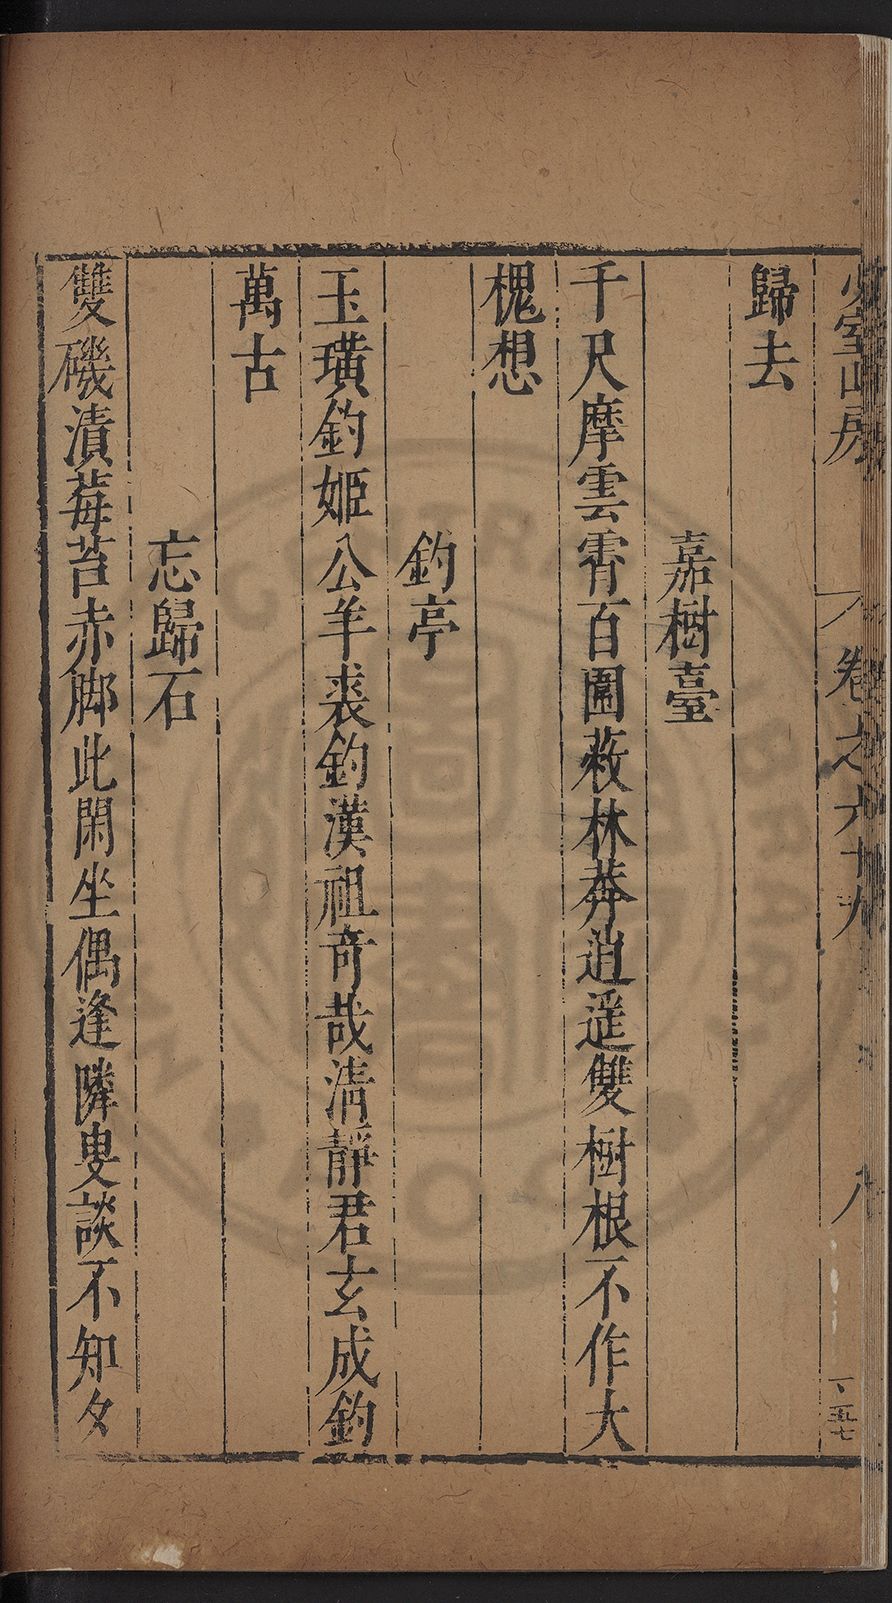 少室山房
卷之六十九
八
五七
歸去
嘉樹臺
千尺摩雲霄百圍蔽林莽逍遥雙樹根不作大
槐想
釣亭
玉璜釣姬公羊裘釣漢祖奇哉清靜君玄成釣
萬古
忘歸石
雙磯漬莓苔赤脚此閑坐偶逢隣叟談不知夕